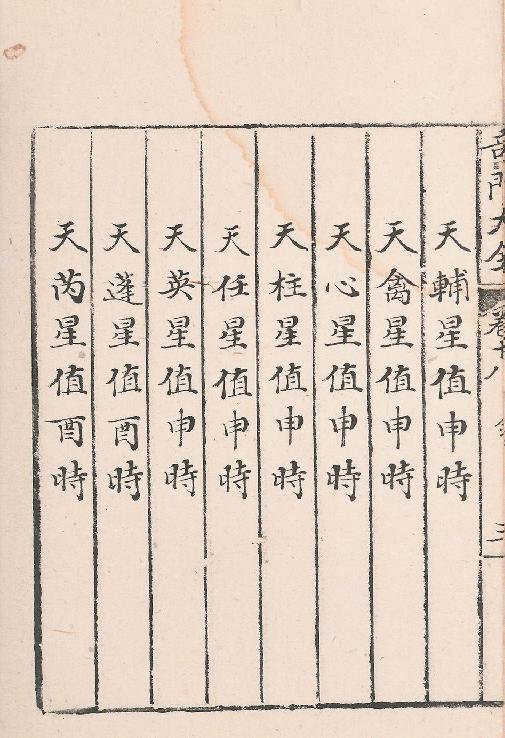 天輔星值申時
天禽星值申時
天心星值申時
天柱星值申時
天任星值申時
天英星值申時
天蓬星值酉時
天芮星值酉時